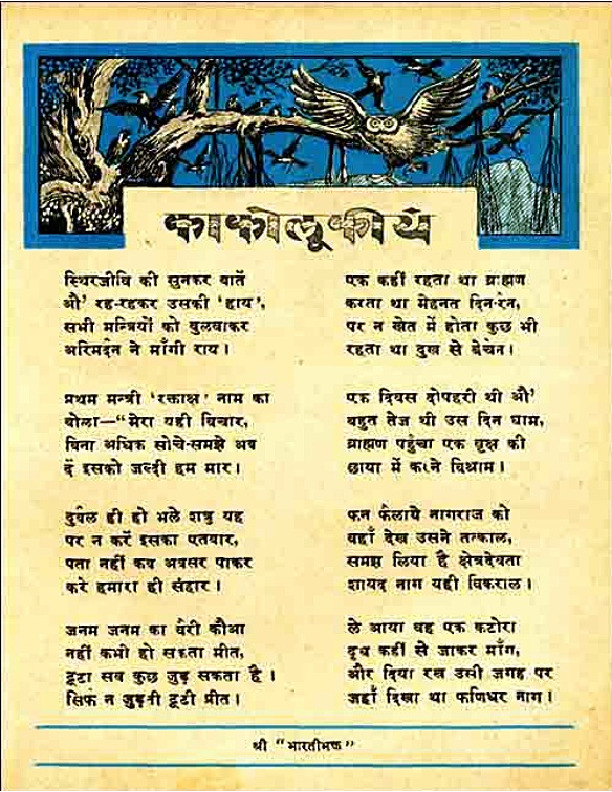 काकोलूकीयं
स्थिरजीवि की सुनकर बातें
औ' रह-रहकर उसकी 'हाय',
सभी मन्त्रियों को बुलवाकर
अरिमर्दन ने माँगी राय।
प्रथम मन्त्री 'रक्ताक्ष' नाम का
बोला—"मेरा यही विचार,
बिना अधिक सोचे-समझे अब
दें इसको जल्दी हम मार।
दुर्बल ही हो भले शत्रु यह
पर न करें इसका एतबार,
पता नहीं कब अवसर पाकर
करे हमारा ही संहार।
जनम जनम का बैरी कौआ
नहीं कभी हो सकता मीत,
टूटा सब कुछ जुड़ सकता है।
सिर्फ न जुड़ती टूटी प्रीत।
एक कहीं रहता था ब्राह्मण
करता था मेहनत दिन-रैन,
पर न खेत में होता कुछ भी
रहता था दुख से बेचैन।
एक दिवस दोपहरी थी औ'
बहुत तेज थी उस दिन घाम,
ब्राह्मण पहुंचा एक वृक्ष की
छाया में करने विश्राम।
फन फैलाये नागराज को
वहाँ देख उसने तत्काल,
समझ लिया है क्षेत्रदेवता
शायद नाग यही विकराल।
ले आया वह एक कटोरा
दूध कहीं से जाकर माँग,
और दिया रख उसी जगह पर
जहाँ दिखा था फणिधर नाग।
श्री "भारतीभक्त"